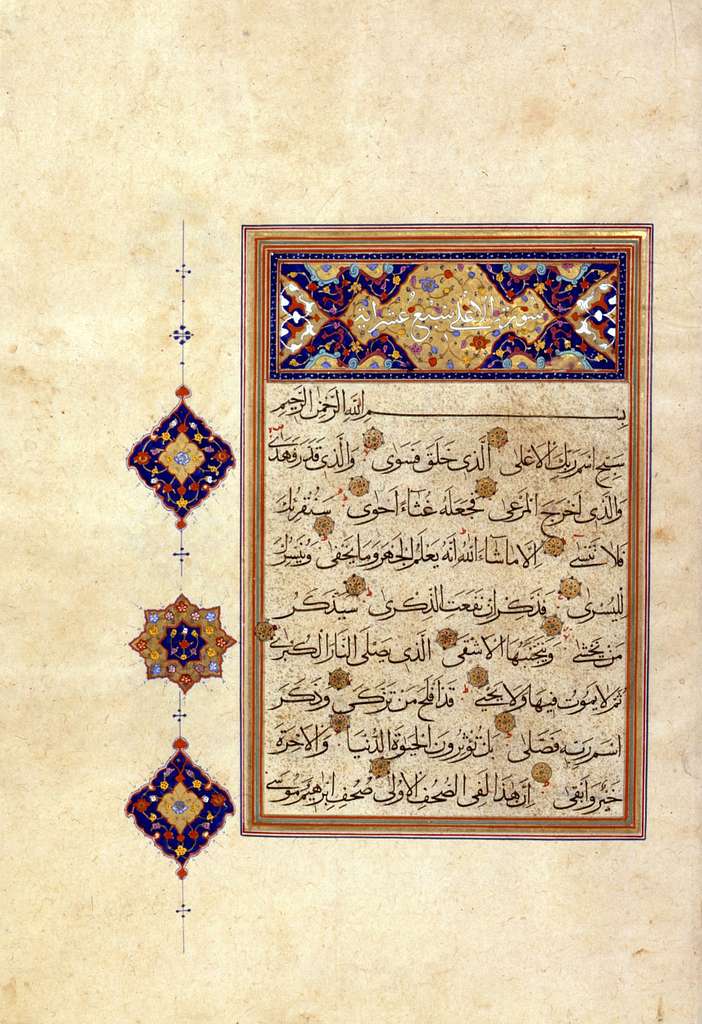 سورة الاعلى سبع عشر اية
بِسْمِ اللَّهِ الرَّحْمٰنِ الرَّحِيمِ
سَبِّحِ اسْمَ رَبِّكَ الْاَعْلَى الَّذِى خَلَقَ فَسَوَّى وَالَّذِى قَدَّرَ فَهَدَى
وَالَّذِى اَخْرَجَ الْمَرْعَى فَجَعَلَهُ غُثَاءً اَحْوَى سَنُقْرِئُكَ
فَلَا تَنْسَى اِلَّا مَا شَاءَ اللَّهُ اِنَّهُ يَعْلَمُ الْجَهْرَ وَمَا يَخْفَى وَنُيَسِّرُكَ
لِلْيُسْرَى فَذَكِّرْ اِنْ نَفَعَتِ الذِّكْرَى سَيَذَّكَّرُ
مَنْ يَخْشَى وَيَتَجَنَّبُهَا الْاَشْقَى الَّذِى يَصْلَى النَّارَ الْكُبْرَى
ثُمَّ لَا يَمُوتُ فِيهَا وَلَا يَحْيَى قَدْ اَفْلَحَ مَنْ تَزَكَّى وَذَكَرَ
اسْمَ رَبِّهِ فَصَلَّى بَلْ تُؤْثِرُونَ الْحَيٰوةَ الدُّنْيَا وَالْاٰخِرَةُ
خَيْرٌ وَاَبْقَى اِنَّ هٰذَا لَفِى الصُّحُفِ الْاُولَى صُحُفِ اِبْرٰهِيمَ وَمُوسَى